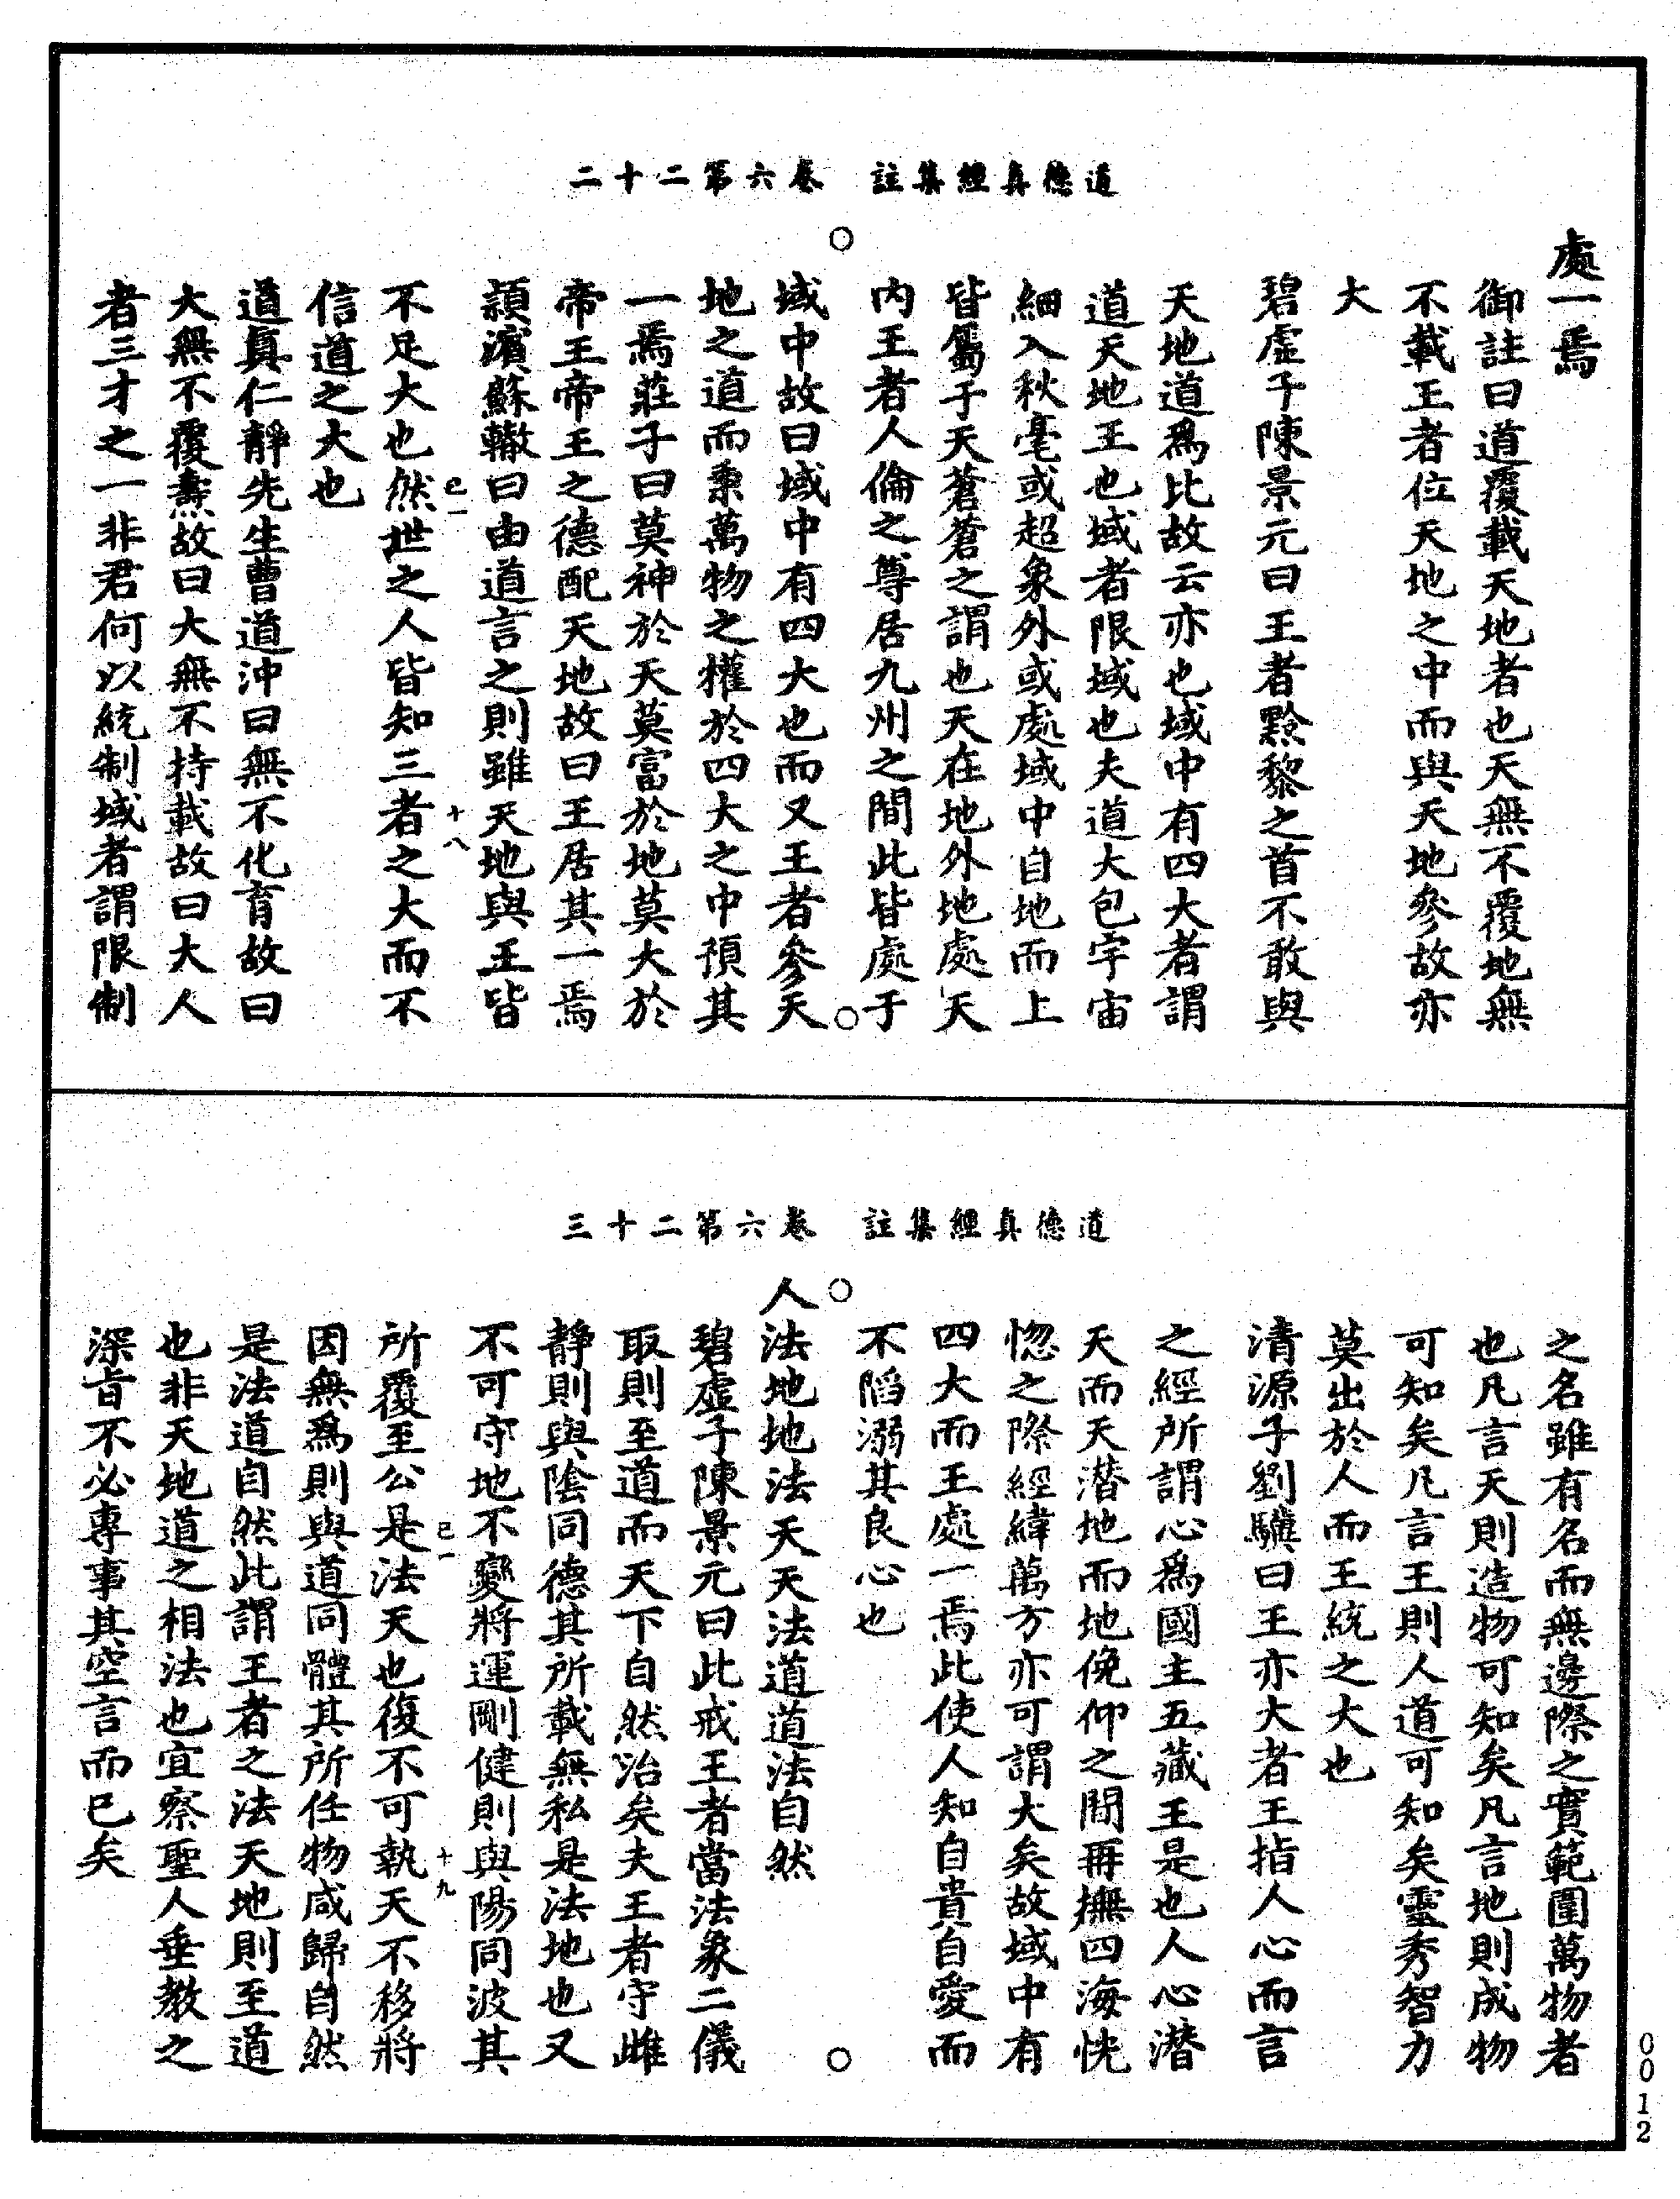 道德真經集註　卷六第二十二
處一焉
御註曰道覆載天地者也天無不覆地無
不載王者位天地之中而與天地參故亦
大
碧虛子陳景元曰王者黔黎之首不敢與
天地道爲比故云亦也域中有四大者謂
道天地王也域者限域也夫道大包宇宙
細入秋毫或超象外或處域中自地而上
皆屬于天蒼蒼之謂也天在地外地處天
内王者人倫之尊居九州之間此皆處于
域中故曰域中有四大也而又王者參天
地之道而秉萬物之權於四大之中預其
一焉莊子曰莫神於天莫富於地莫大於
帝王帝王之德配天地故曰王居其一焉
頴濵蘇轍曰由道言之則雖天地與王皆
己一　十八
不足大也然世之人皆知三者之大而不
信道之大也
道真仁靜先生曹道沖曰無不化育故曰
大無不覆燾故曰大無不持載故曰大人
者三才之一非君何以統制域者謂限制
道德真經集註　卷六第二十三
之名雖有名而無邊際之實範圍萬物者
也凡言天則造物可知矣凡言地則成物
可知矣凡言王則人道可知矣靈秀智力
莫出於人而王統之大也
清源子劉驥曰王亦大者王指人心而言
之經所謂心爲國主五藏王是也人心潛
天而天潛地而地俛仰之間再撫四海恍
惚之際經緯萬方亦可謂大矣故域中有
四大而王處一焉此使人知自貴自愛而
不陷溺其良心也
人法地地法天天法道道法自然
碧虛子陳景元曰此戒王者當法象二儀
取則至道而天下自然治矣夫王者守雌
靜則與陰同德其所載無私是法地也又
不可守地不變將運剛健則與陽同波其
己一　十九
所覆至公是法天也復不可執天不移將
因無爲則與道同體其所任物咸歸自然
是法道自然此謂王者之法天地則至道
也非天地道之相法也宜察聖人垂教之
深旨不必專事其空言而已矣
0012